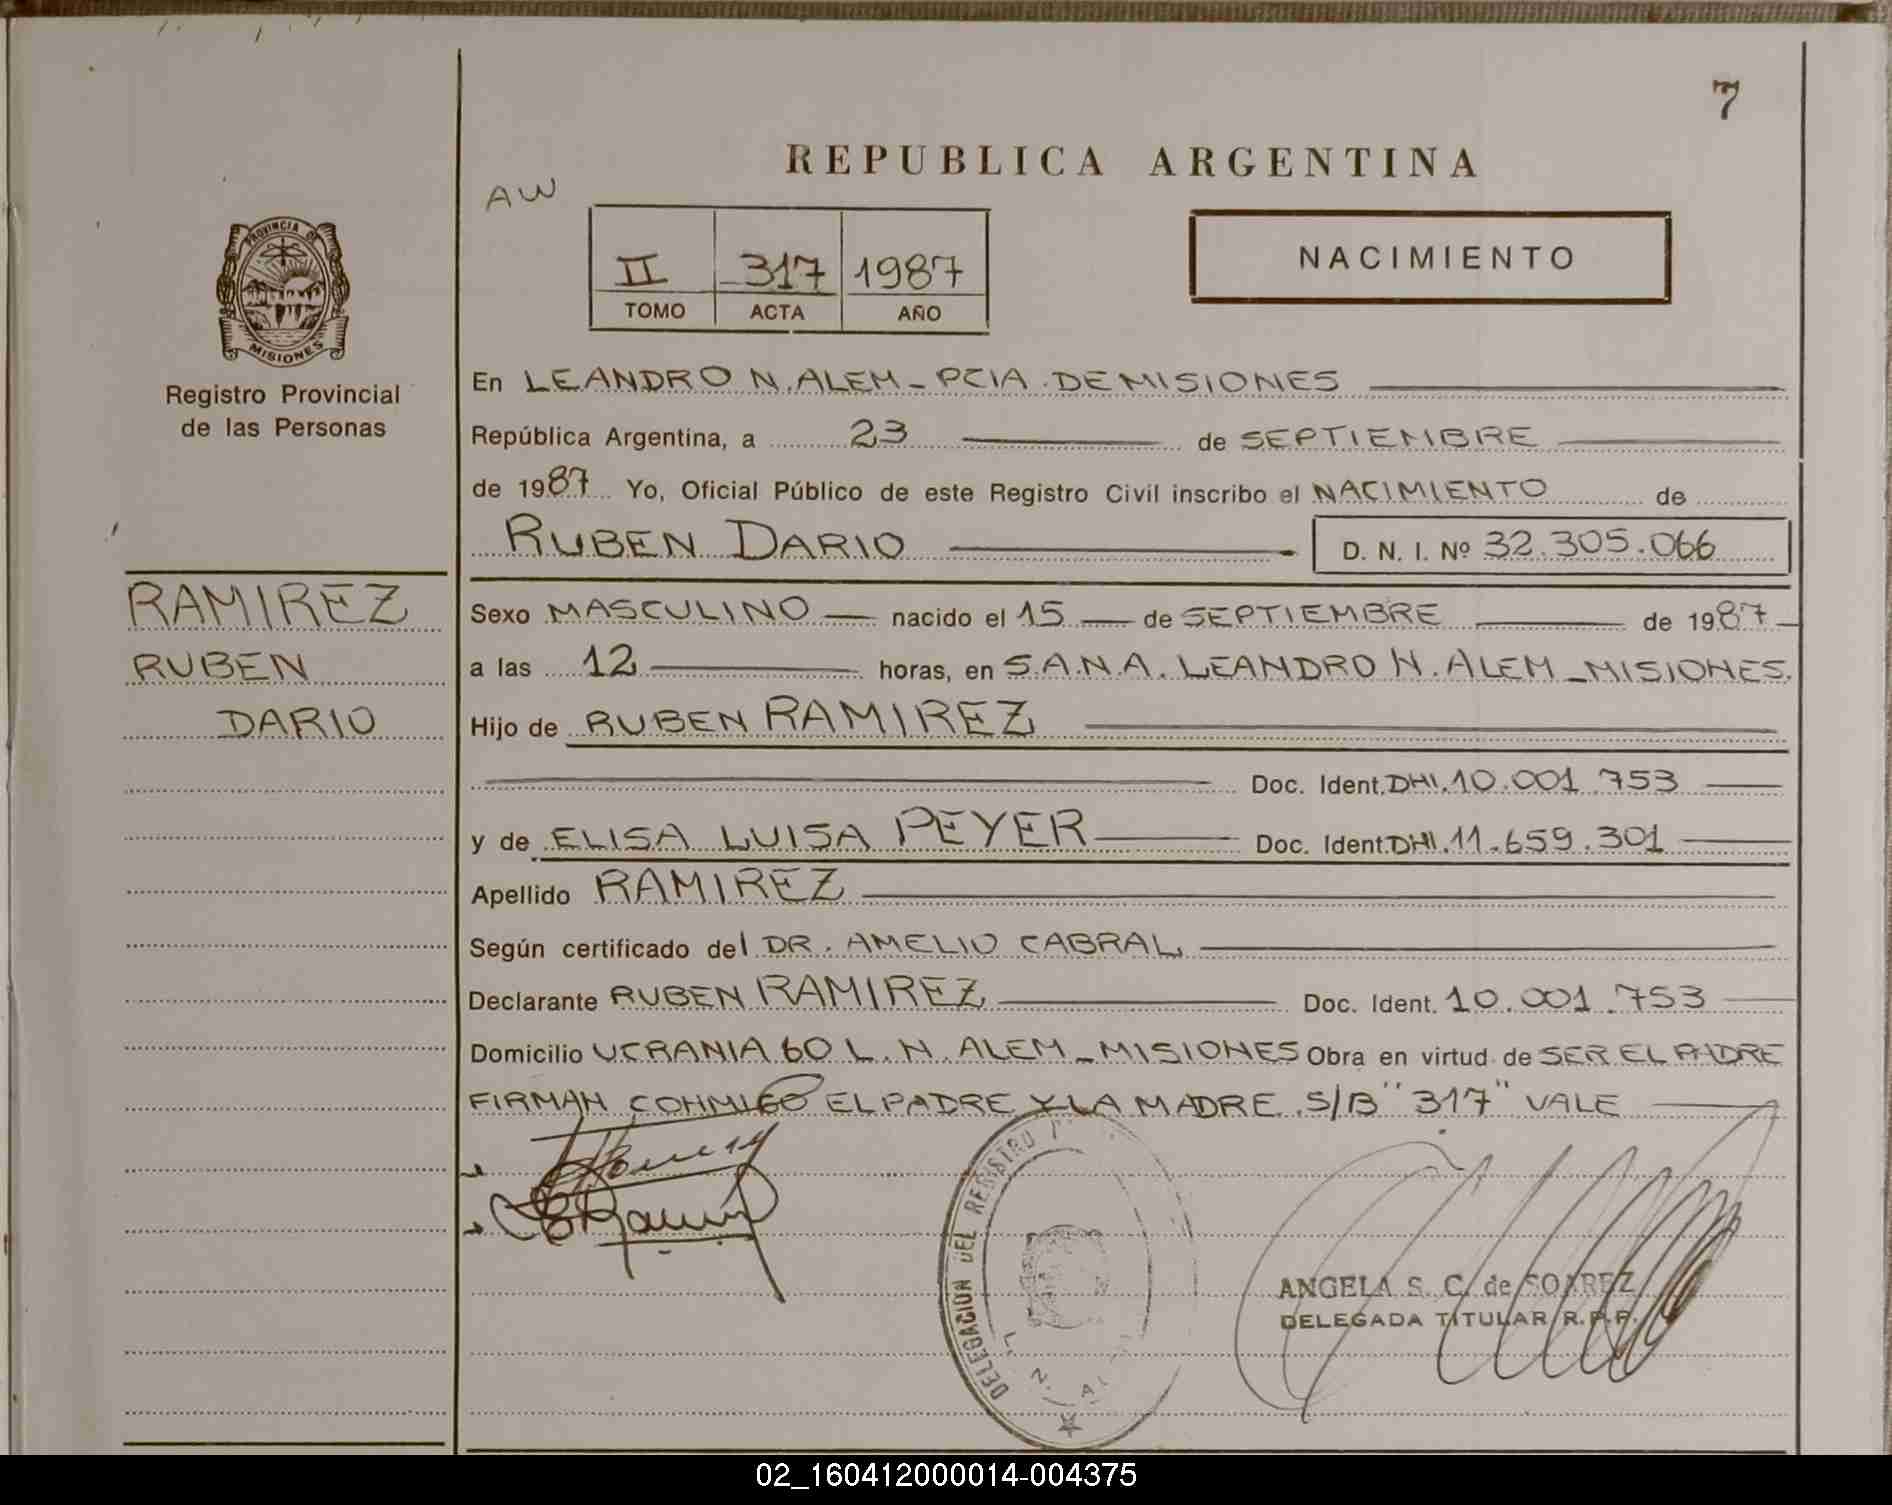 7
REPUBLICA ARGENTINA
AW
PROVINCIA DE
MISIONES
II 317 1987
TOMO ACTA AÑO
NACIMIENTO
Registro Provincial
de las Personas
En LEANDRO N. ALEM - PCIA. DE MISIONES
República Argentina, a 23 de SEPTIEMBRE
de 1987 Yo, Oficial Público de este Registro Civil inscribo el NACIMIENTO de
RUBEN DARIO D. N. I. Nº 32.305.066
RAMIREZ
RUBEN
DARIO
Sexo MASCULINO nacido el 15 de SEPTIEMBRE de 1987
a las 12 horas, en S.A.N.A. LEANDRO N. ALEM - MISIONES.
Hijo de RUBEN RAMIREZ
Doc. Ident. DNI. 10.001.753
y de ELISA LUISA PEYER Doc. Ident. DNI. 11.659.301
Apellido RAMIREZ
Según certificado del DR. AMELIO CABRAL
Declarante RUBEN RAMIREZ Doc. Ident. 10.001.753
Domicilio UCRANIA 60 L. N. ALEM - MISIONES Obra en virtud de SER EL PADRE
FIRMAN CONMIGO EL PADRE Y LA MADRE. S/B "317" VALE
DELEGACION DEL REGISTRO
L. N. AL
ANGELA S. C. de SOAREZ
DELEGADA TITULAR R.P.P.
02_160412000014-004375